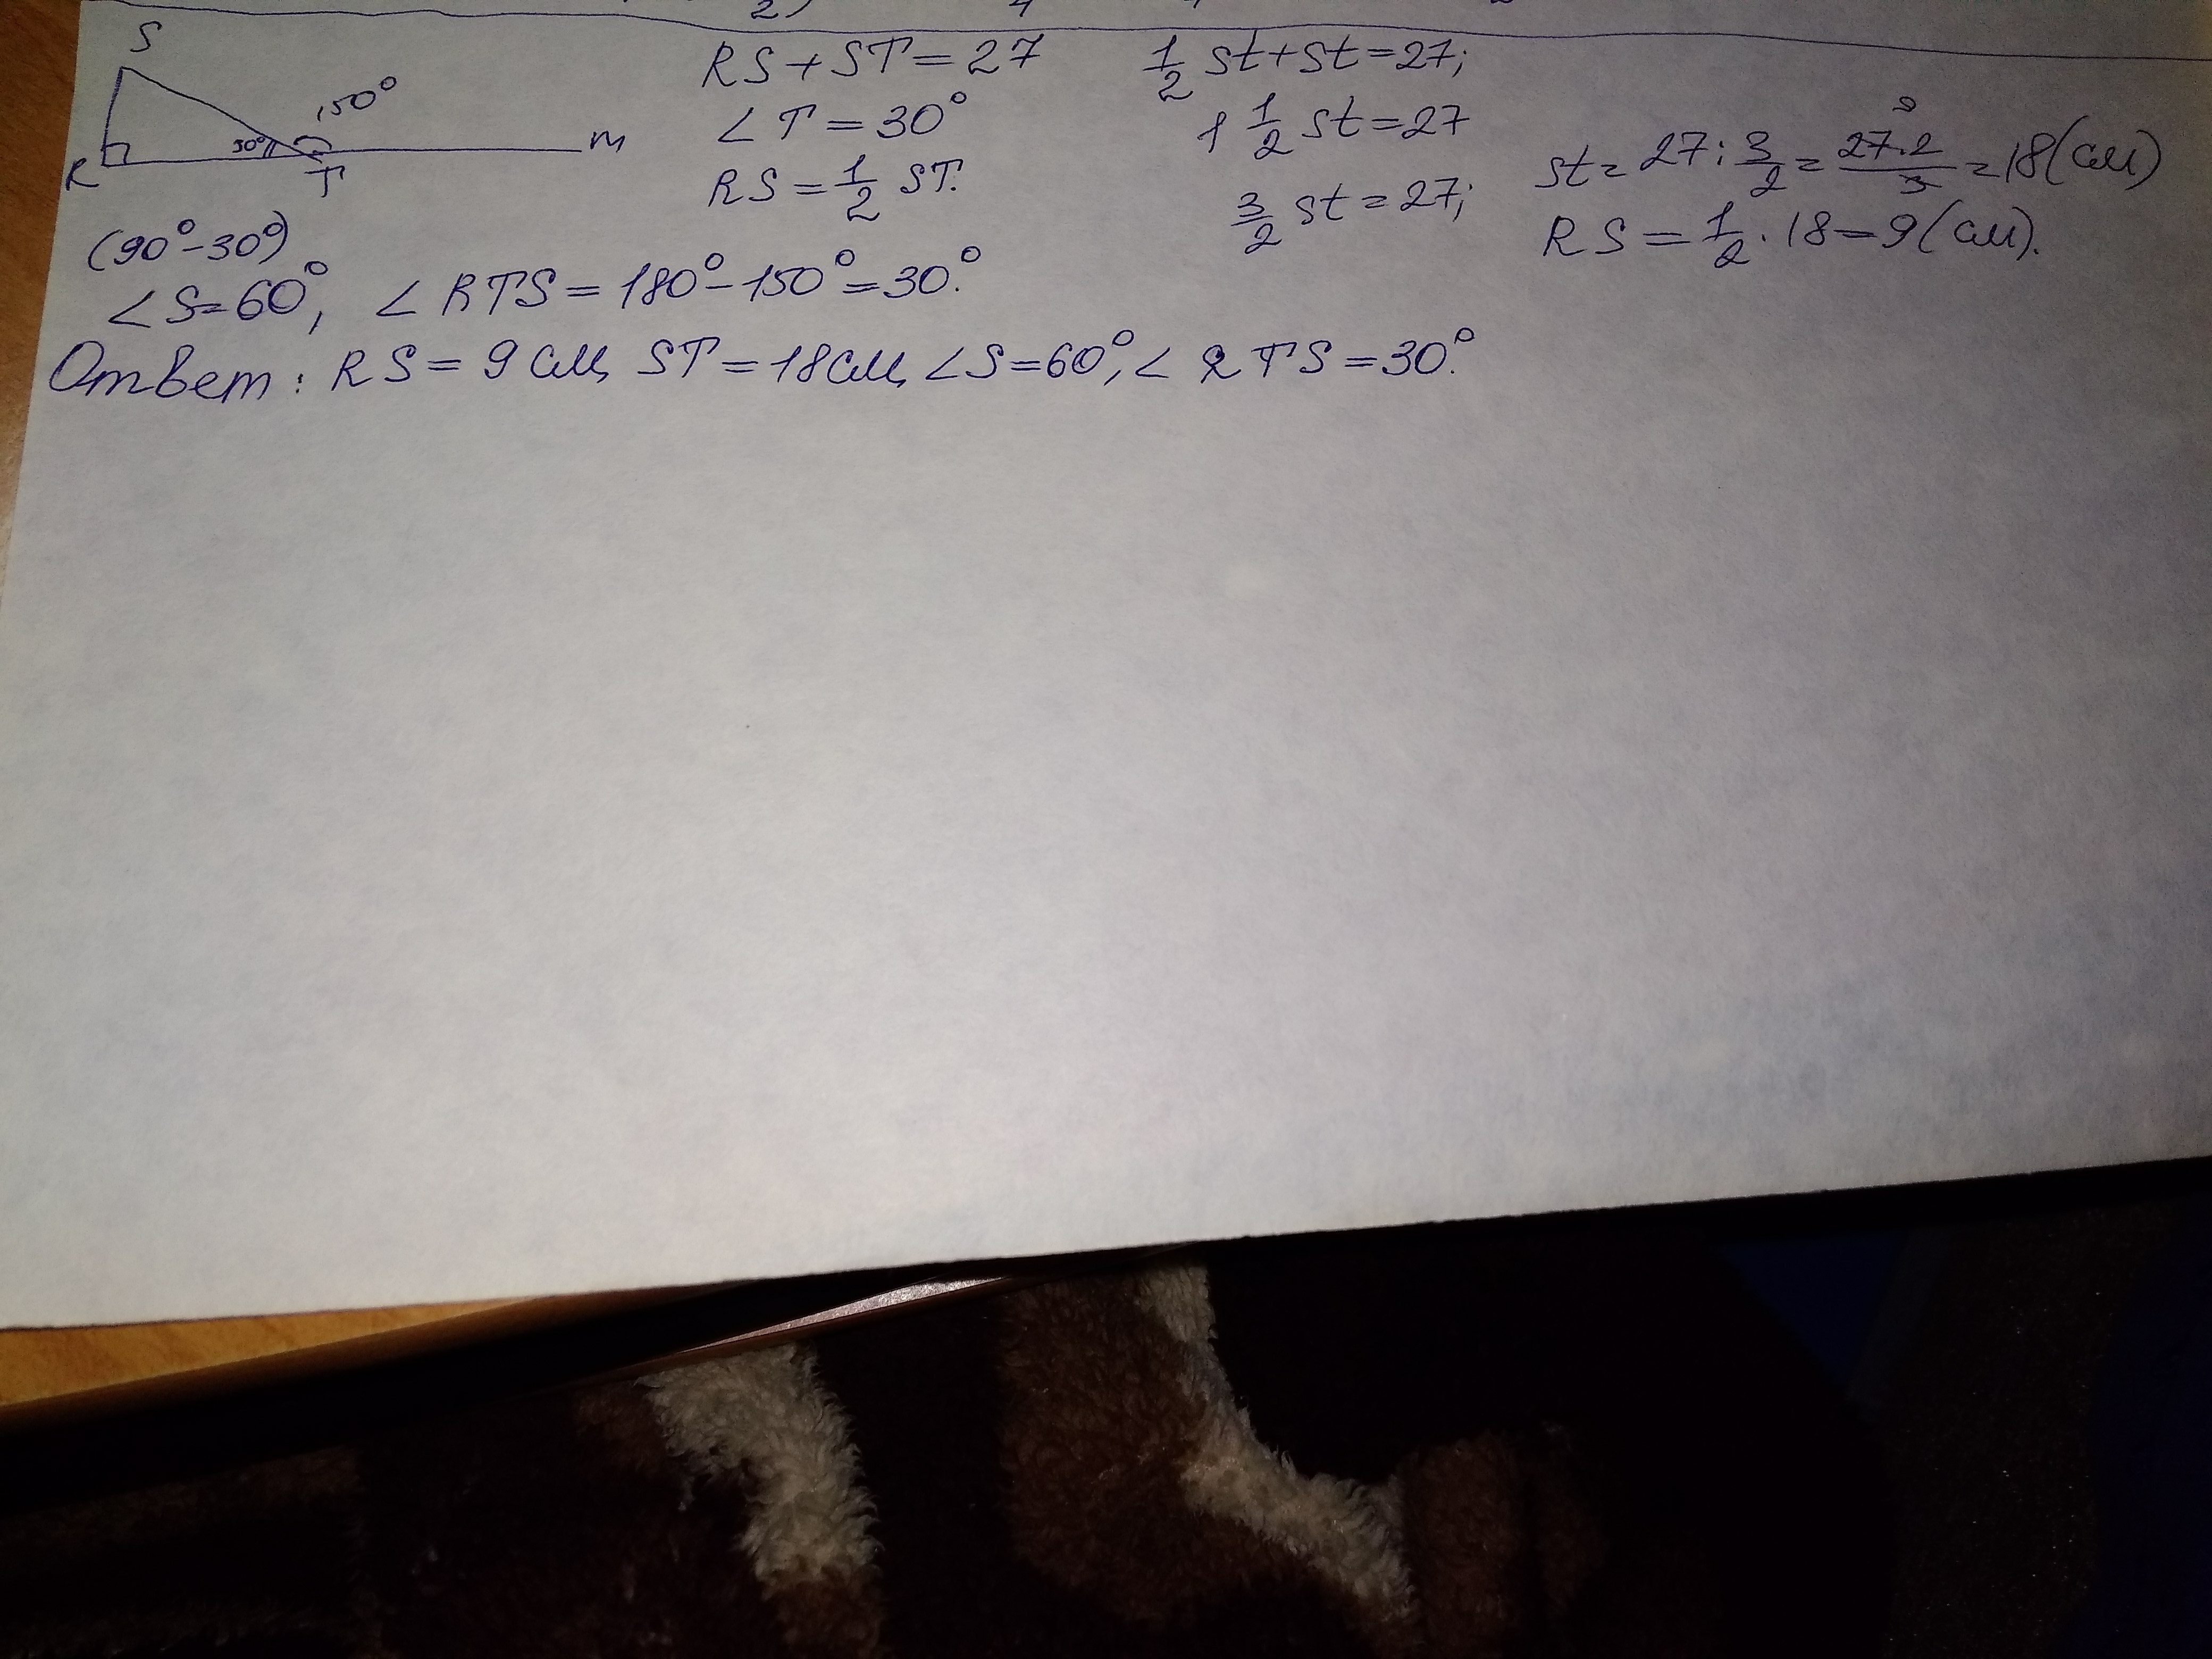 2) 4 4
S
150°
30°
R
T
m
RS + ST = 27
∠T = 30°
RS = 1/2 ST.
1/2 st + st = 27;
1 1/2 st = 27
3/2 st = 27;
9
st = 27 : 3/2 = 27·2/3 = 18 (см)
RS = 1/2 · 18 = 9 (см).
(90° - 30°)
∠S = 60°, ∠RTS = 180° - 150° = 30°.
Ответ: RS = 9 см, ST = 18 см, ∠S = 60°, ∠RTS = 30°.